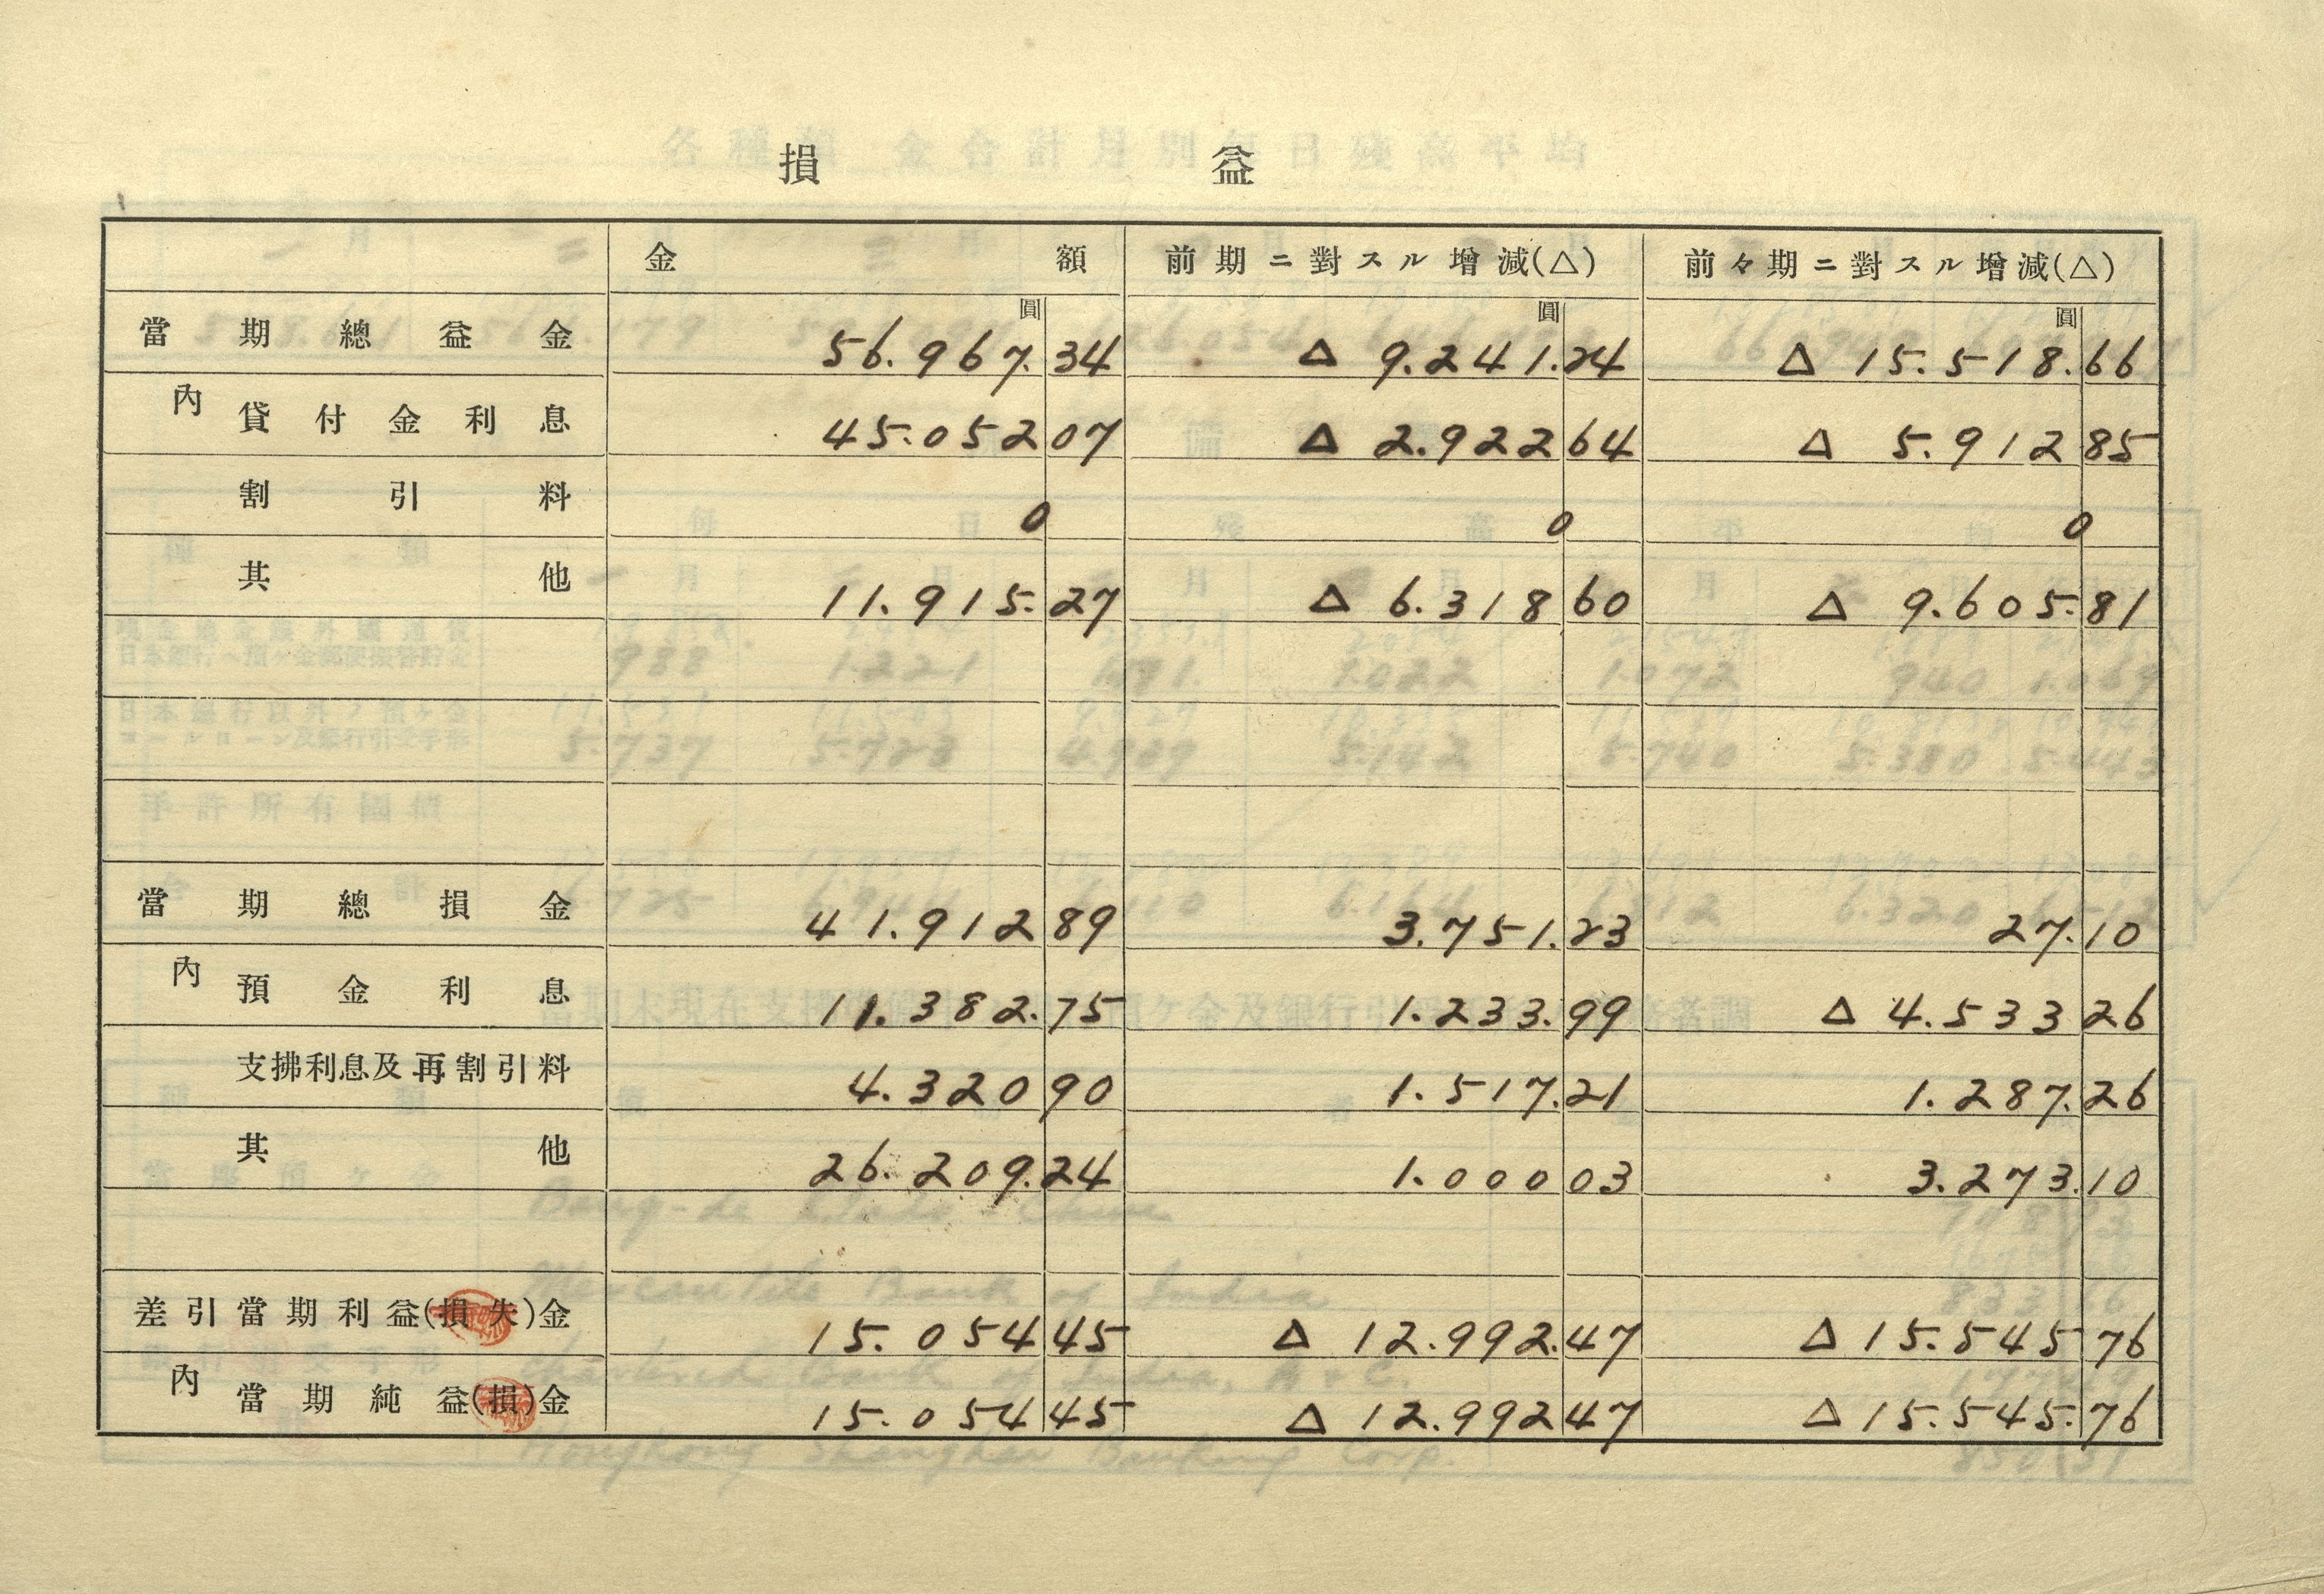 損益
金額 前期ニ對スル增減(△) 前々期ニ對スル增減(△)
圓 圓 圓
當期總益金 56.967.34 △ 9.241.24 △ 15.518.66
內 貸付金利息 45.052 07 △ 2.922 64 △ 5.912 85
割引料 0 0 0
其他 11.915.27 △ 6.318 60 △ 9.605.81
當期總損金 41.912 89 3.751.23 27.10
內 預金利息 11.382.75 1.233.99 △ 4.533 26
支拂利息及再割引料 4.320 90 1.517.21 1.287.26
其他 26.209.24 1.000 03 3.273.10
差引當期利益(損失)金 15.054 45 △ 12.992.47 △ 15.545 76
內 當期純益(損)金 15.054 45 △ 12.992 47 △ 15.545.76